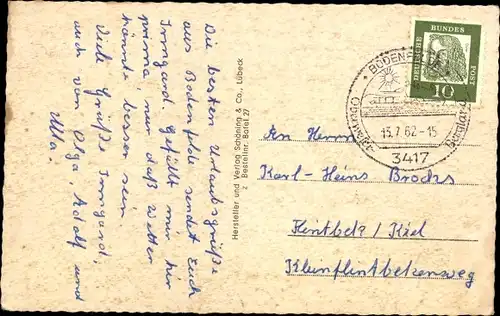 Die besten Urlaubsgrüße
aus Bodenfelde sendet Euch
Irmgard. Gefällt mir hier
prima, nur daß Wetter
könnte besser sein
Viele Grüße Irmgard,
auch von Olga, Adolf und
Hersteller und Verlag Schöning & Co., Lübeck
Z Bestellnr. Bofel 27
DEUTSCHE
BUNDES
POST
10
13.7.62-15
3417
An Herrn
Karl-Heinz Brocks
Flintbek/Kiel
Kleinflintbekerweg